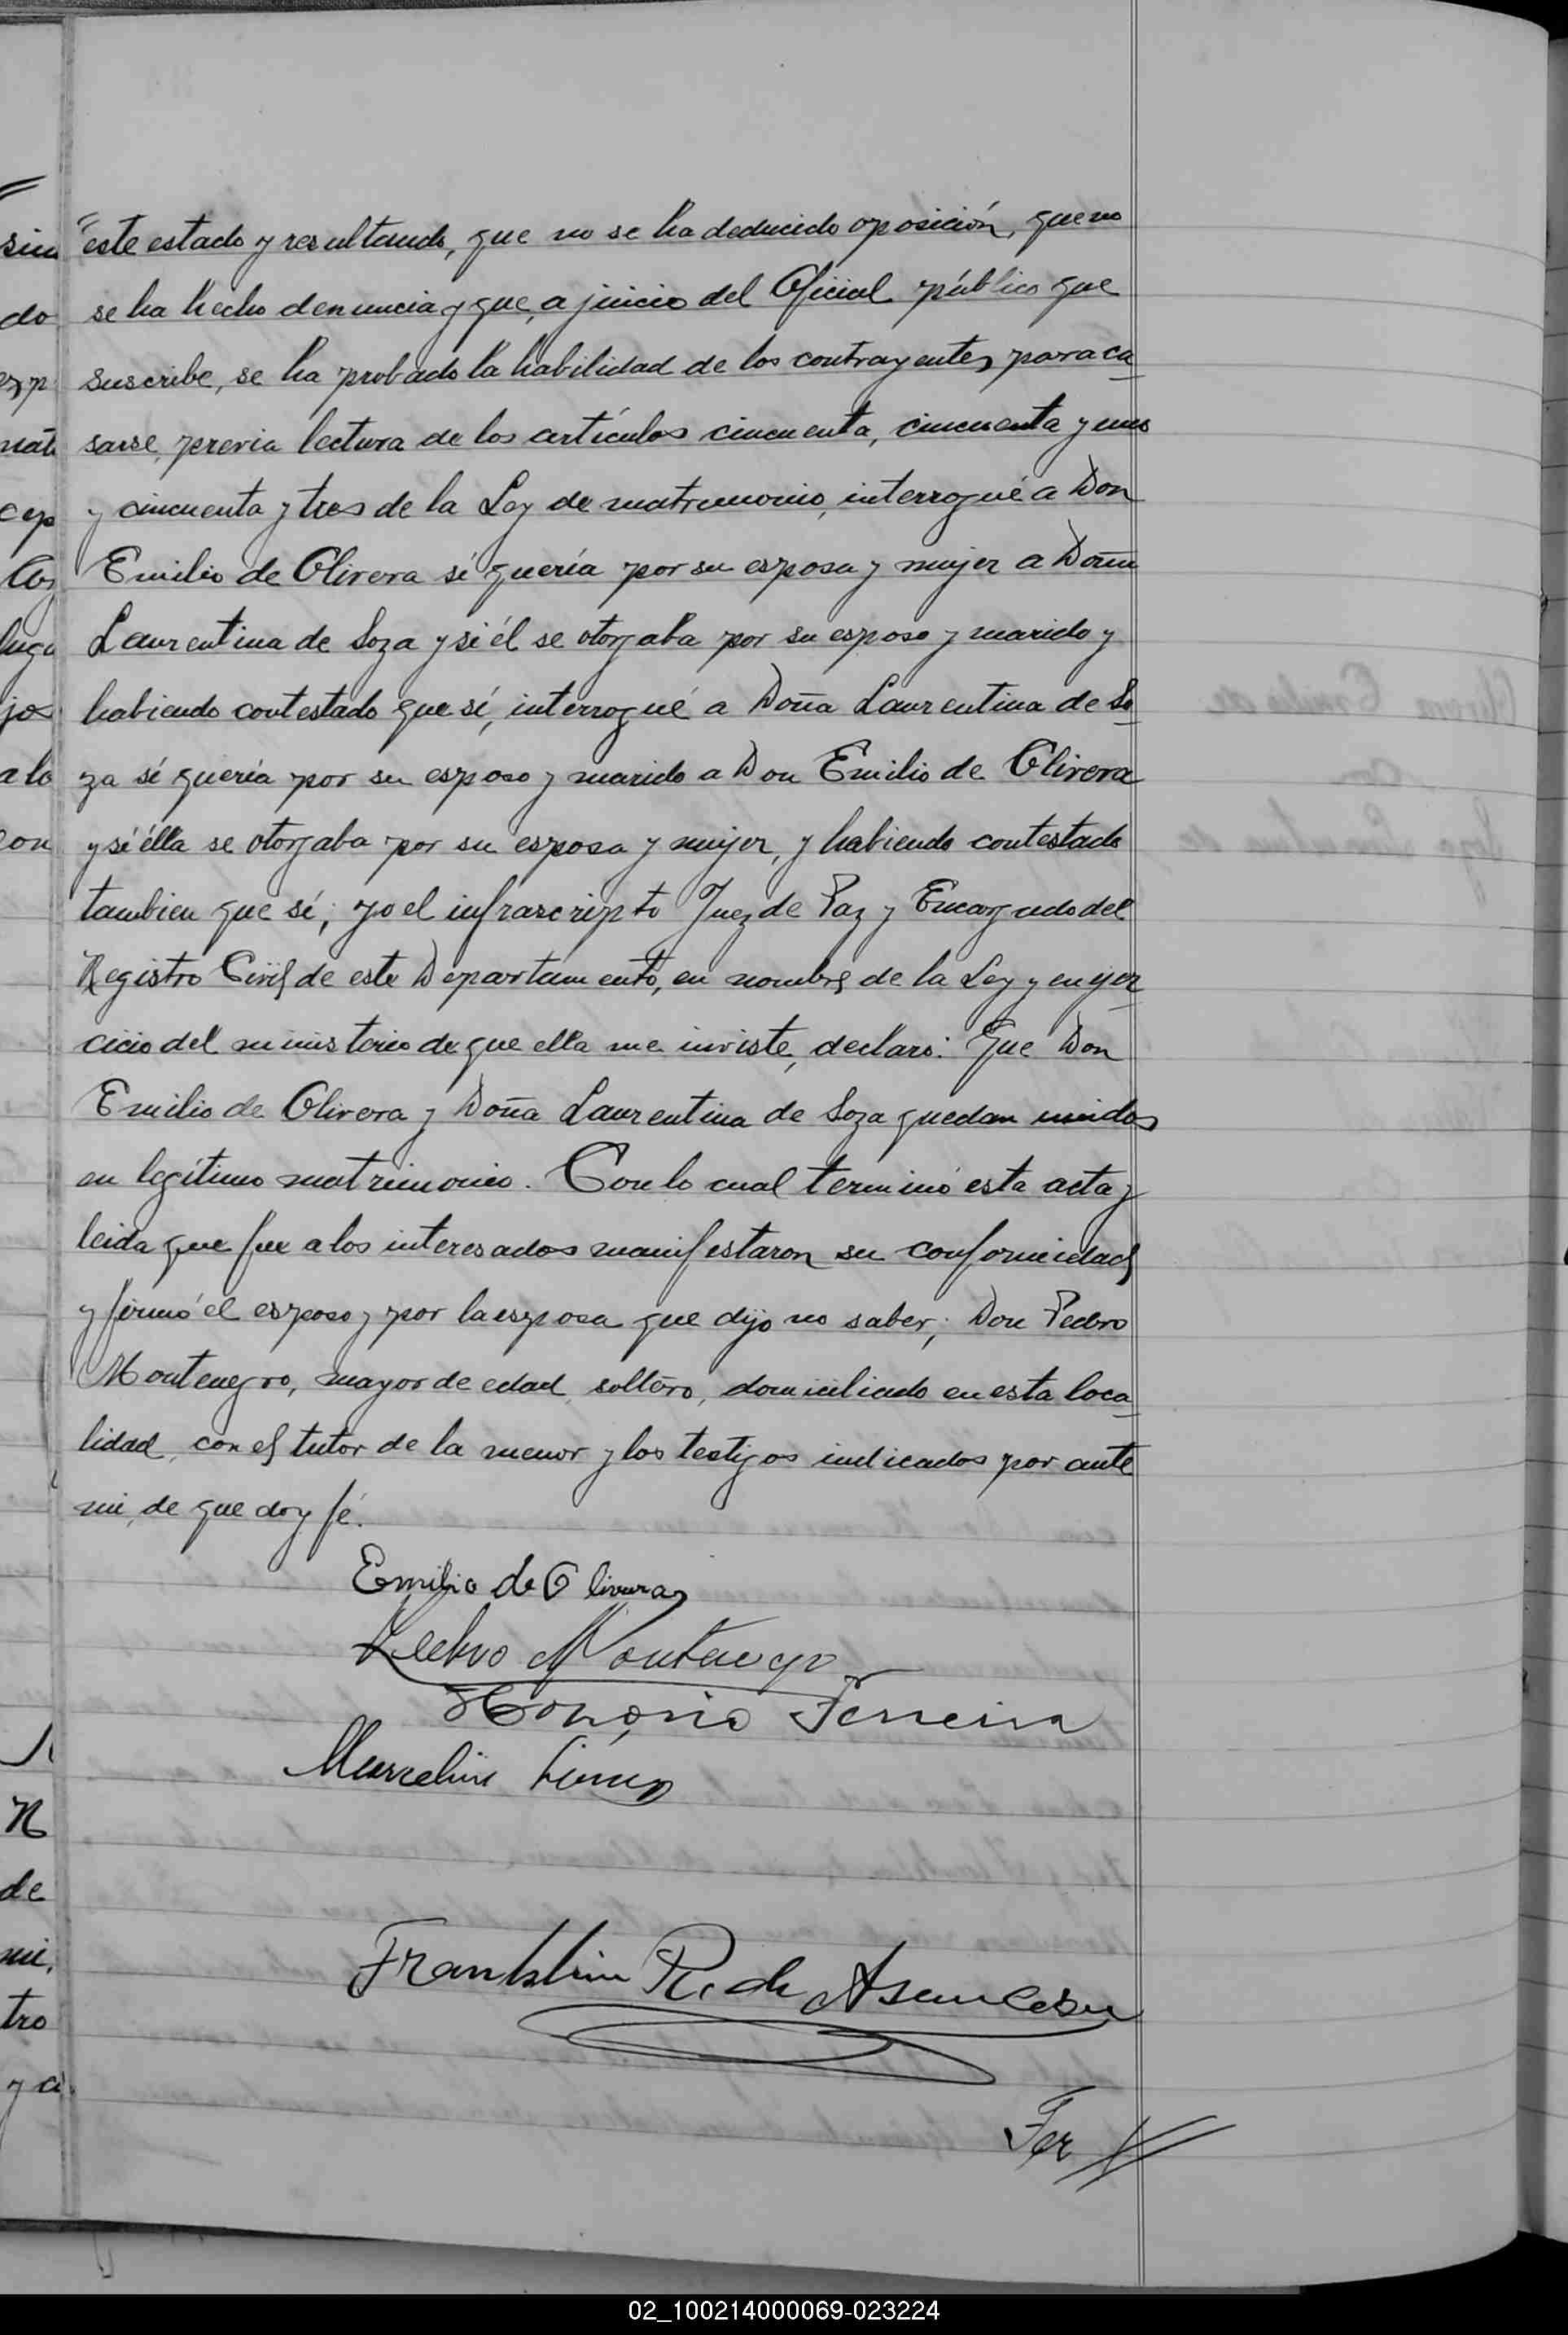 este estado y resultando, que no se ha deducido oposición, que no
se ha hecho denuncia y que, a juicio del Oficial público que
suscribe, se ha probado la habilidad de los contrayentes para ca-
sarse, previa lectura de los artículos cincuenta, cincuenta y uno
y cincuenta y tres de la Ley de matrimonio, interrogué a Don
Emilio de Olivera sí quería por su esposa y mujer a Doña
Laurentina de Soza y si él se otorgaba por su esposo y marido y
habiendo contestado que sí, interrogué a Doña Laurentina de So-
za sí quería por su esposo y marido a Don Emilio de Olivera
y sí élla se otorgaba por su esposa y mujer, y habiendo contestado
tambien que sí; yo el infrascripto Juez de Paz y Encargado del
Registro Civil de este Departamento, en nombre de la Ley y en ejer-
cicio del ministerio de que ella me inviste, declaro: Que Don
Emilio de Olivera y Doña Laurentina de Soza quedan unidos
en legítimo matrimonio. Con lo cual terminó esta acta y
leida que fue a los interesados manifestaron su conformidad
y firmó el esposo y por la esposa que dijo no saber; Don Pedro
Montenegro, mayor de edad, soltero, domiciliado en esta loca-
lidad, con el tutor de la menor y los testigos indicados por ante
mi, de que doy fé.
Emilio de Olivera
Pedro Montenegro
Honorio Ferreira
Marcelino
Franklin R. de
02_100214000069-023224